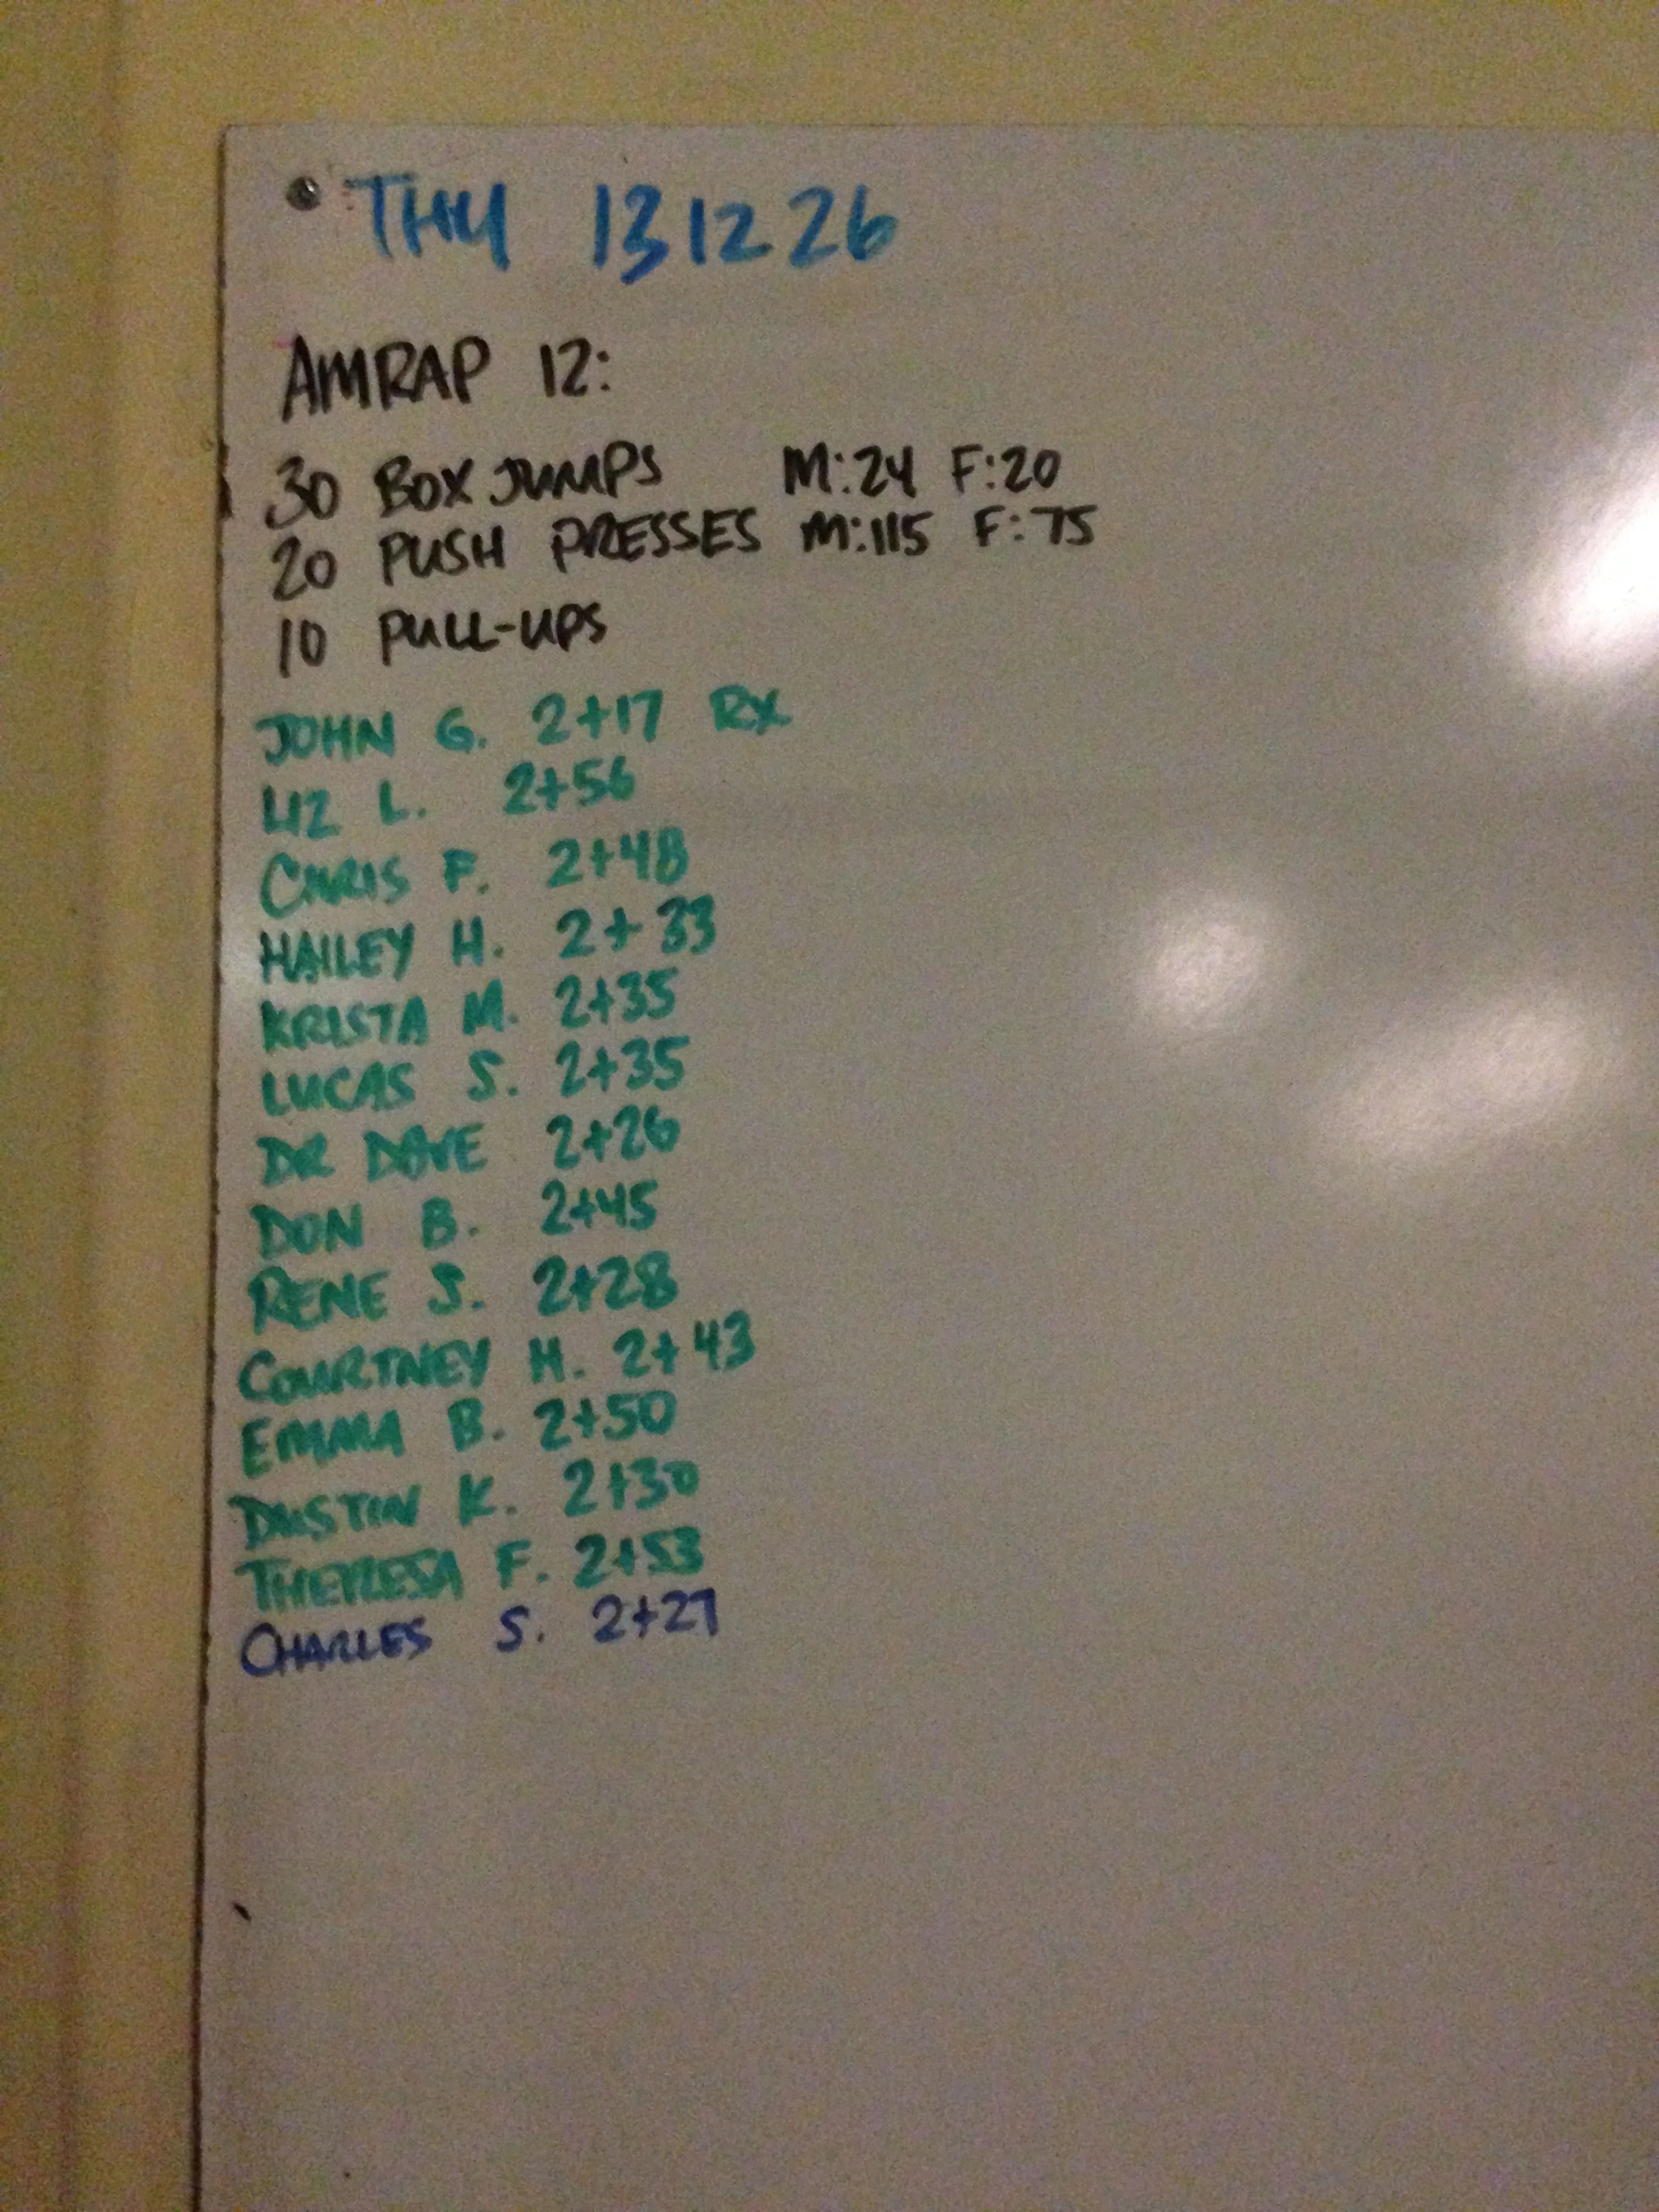 THU 131226
AMRAP 12:
30 BOX JUMPS M:24 F:20
20 PUSH PRESSES M:115 F:75
10 PULL-UPS
JOHN G. 2+17 RX
LIZ L. 2+56
CHRIS F. 2+48
HAILEY H. 2+33
KRISTA M. 2+35
LUCAS S. 2+35
DR DAVE 2+26
DON B. 2+45
RENE S. 2+28
COURTNEY H. 2+43
EMMA B. 2+50
DUSTIN K. 2+30
THERESA F. 2+53
CHARLES S. 2+27